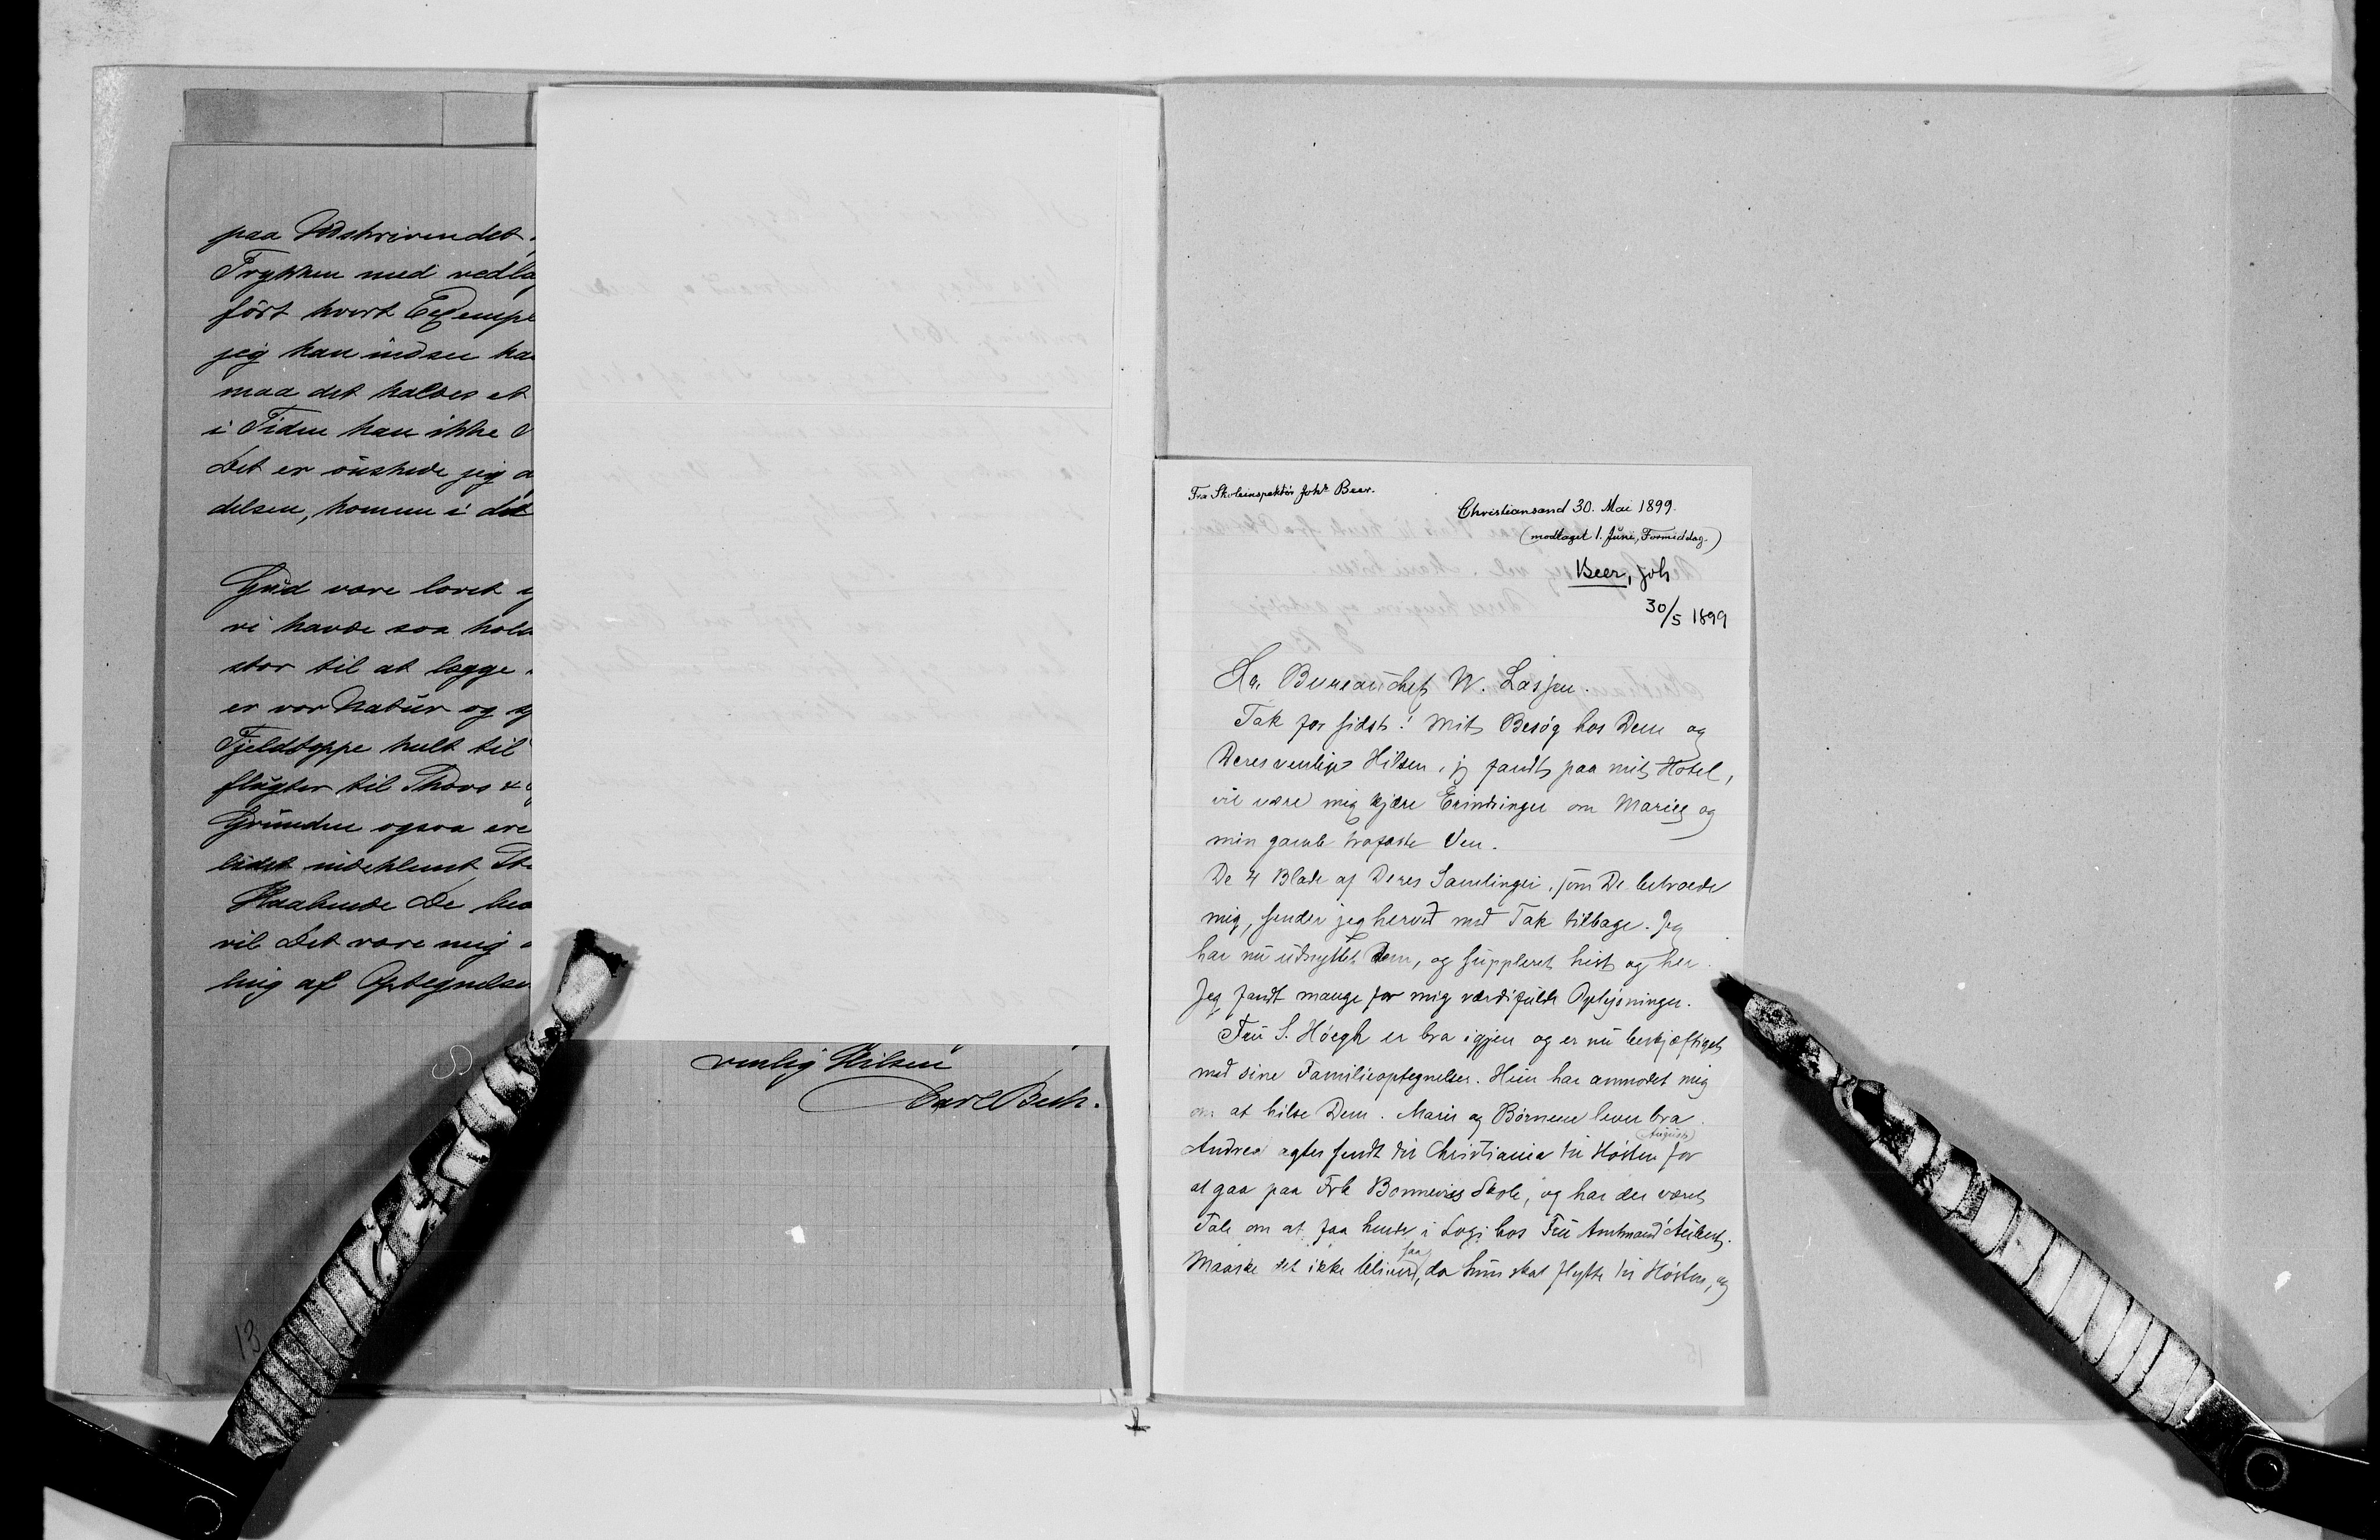 paa Udskrivendet
Trykken med vedla
ført hvert Exempl
jeg kan indsee ka
maa det kaldes et
i Tiden kan ikke
Det er ønskede jeg a
delsen, komme i det
Gud være lovet
vi havde saa hol
stor til at lægge
er vor Natur og
Fjeldtoppe helt til
flugter til Thors
Grunden ogsaa ere
lidet indeklemt
Haabende De
vil Det være mig
ling af Optegnelse
13
venlig Hilsen
Carl Bech.
Fra Skoleinspektør Joh⁠s Beer.
Christiansand 30. Mai 1899.
(modtaget 1. Juni, Formiddag.)
Beer, Joh
30/5 1899
Hr. Bureauchef W. Lassen.
Tak for sidst! Mit Besøg hos Dem og
Deres venlige Hilsen, jeg fandt paa mit Hotel,
vil være mig kjære Erindringer om Maries og
min gamle trofaste Ven.
De 4 Blade af Deres Samlinger, som De betroede
mig, sender jeg herved med Tak tilbage. Jeg
har nu udnyttet dem, og suppleret hist og her.
Jeg fandt mange for mig værdifulde Oplysninger.
Fru S. Høegh er bra igjen og er nu beskjæftiget
med sine Familieoptegnelser. Hun har anmodet mig
om at hilse Dem. Marie og Børnene lever bra.
(August)
Andrea agtes sendt til Christiania til Høsten for
at gaa paa Frk Bonnevies Skole, og har der været
Tale om at faa hende i Logi hos Fru Amtmand Aubert.
saa
Maaske det ikke bliver, da hun skal flytte til Høsten, og
15